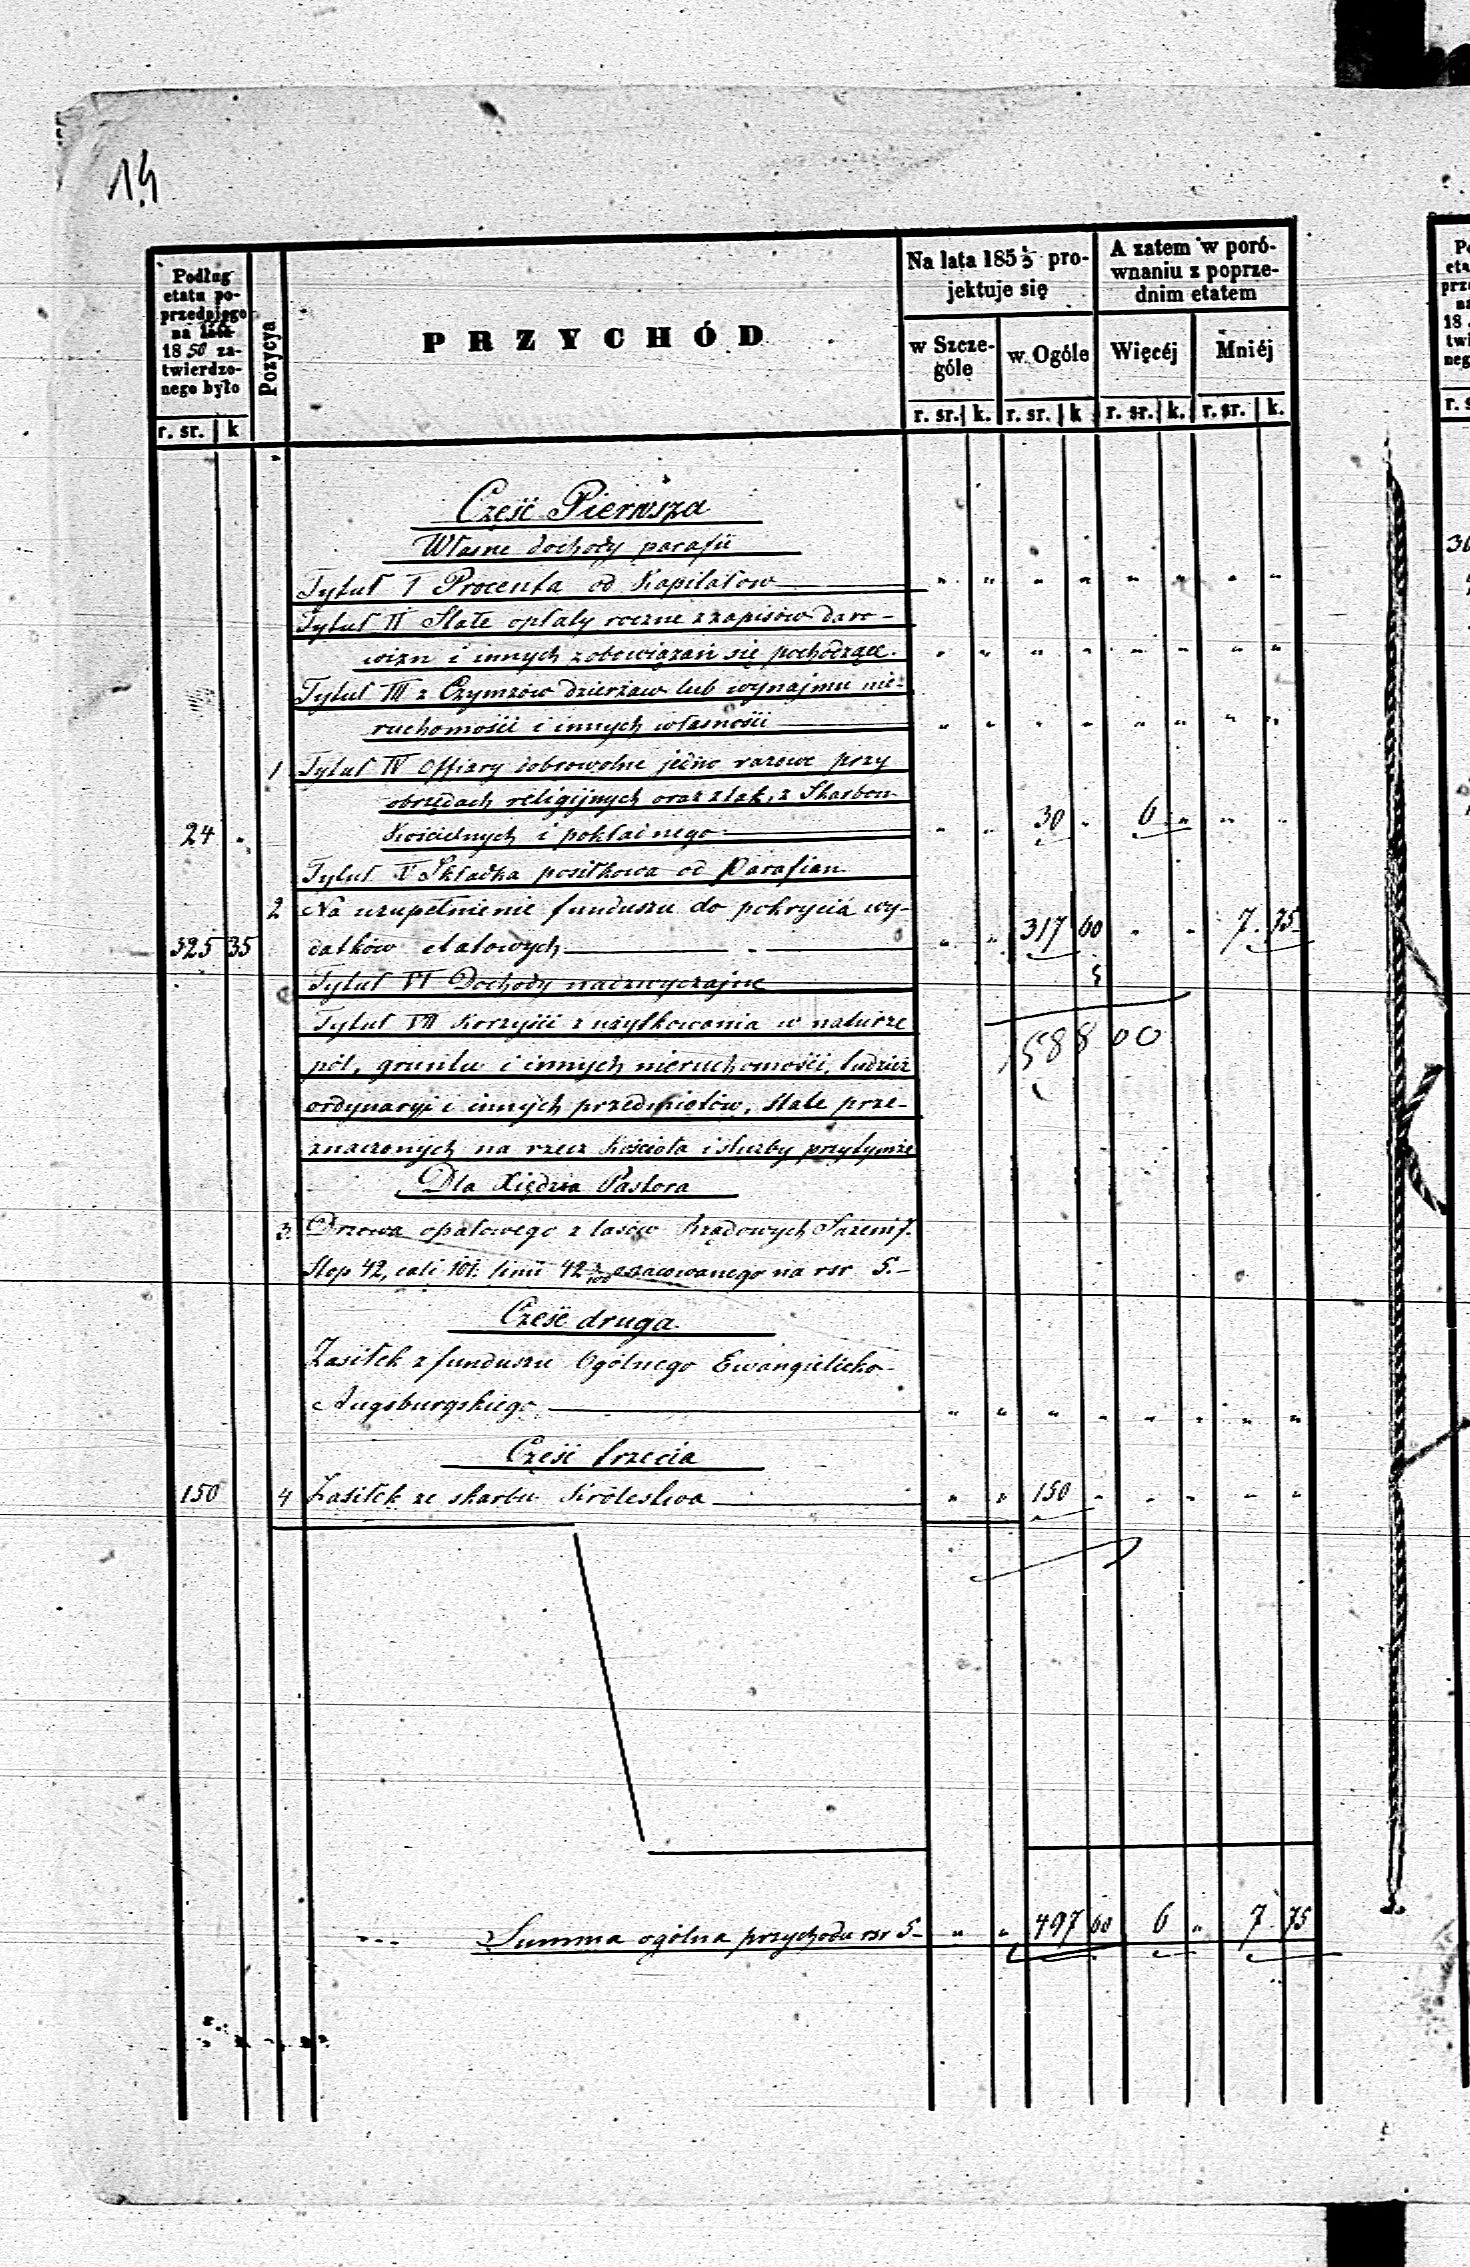 14
Podług etatu poprzedniego na lata 1850 zatwierdzonego było
Pozycya
PRZYCHÓD
Na lata 185 1/3 projektuje się
A zatem w porównaniu z poprzednim etatem
w Szczególe
w Ogóle
Więcéj
Mniéj
r. sr. k r. sr. k. r. sr. k r. sr. k. r. sr. k.
Część Pierwsza
Własne dochody parafii
Tytuł I Procenta od Kapitałów " " " " " " " "
Tytuł II Stałe opłaty roczne z zapisów daro-
wizn i innych zobowiązań się pochodzące. " " " " " " " "
Tytuł III z Czynszów dzierżaw lub wynajmu nie-
ruchomości i innych własności " " " " " " " "
1 Tytuł IV Offiary dobrowolne jedno razowe przy
obrzędach religijnych oraz z tac, z Skarbon
24 " Kościelnych i pokładnego " " 30 " 6 " " "
Tytuł V Składka posiłkowa od Parafian
2 Na uzupełnienie funduszu do pokrycia wy-
325 35 datków etatowych " " 317 60 " " 7 75
Tytuł VI Dochody nadzwyczajne
Tytuł VII Korzyści z użytkowania w naturze
588 00
pól, gruntu i innych nieruchomości, tudzież
ordynaryi i innych przedmiotów, stale prze-
znaczonych na rzecz Kościoła i służby przytymże
Dla Xiędza Pastora
3 Drzewa opałowego z lasów Rządowych Sażeni
Stop 42, cali 101. linii 42 oszacowanego na rsr 5.-
Część druga
Zasiłek z funduszu Ogólnego Ewangielicko-
Augsburgskiego " " " " " " " "
Część trzecia
150 4 Zasiłek ze skarbu Królestwa " " 150 " " " " "
Summa ogólna przychodu rsr 5- " " 497 60 6 " 7 75